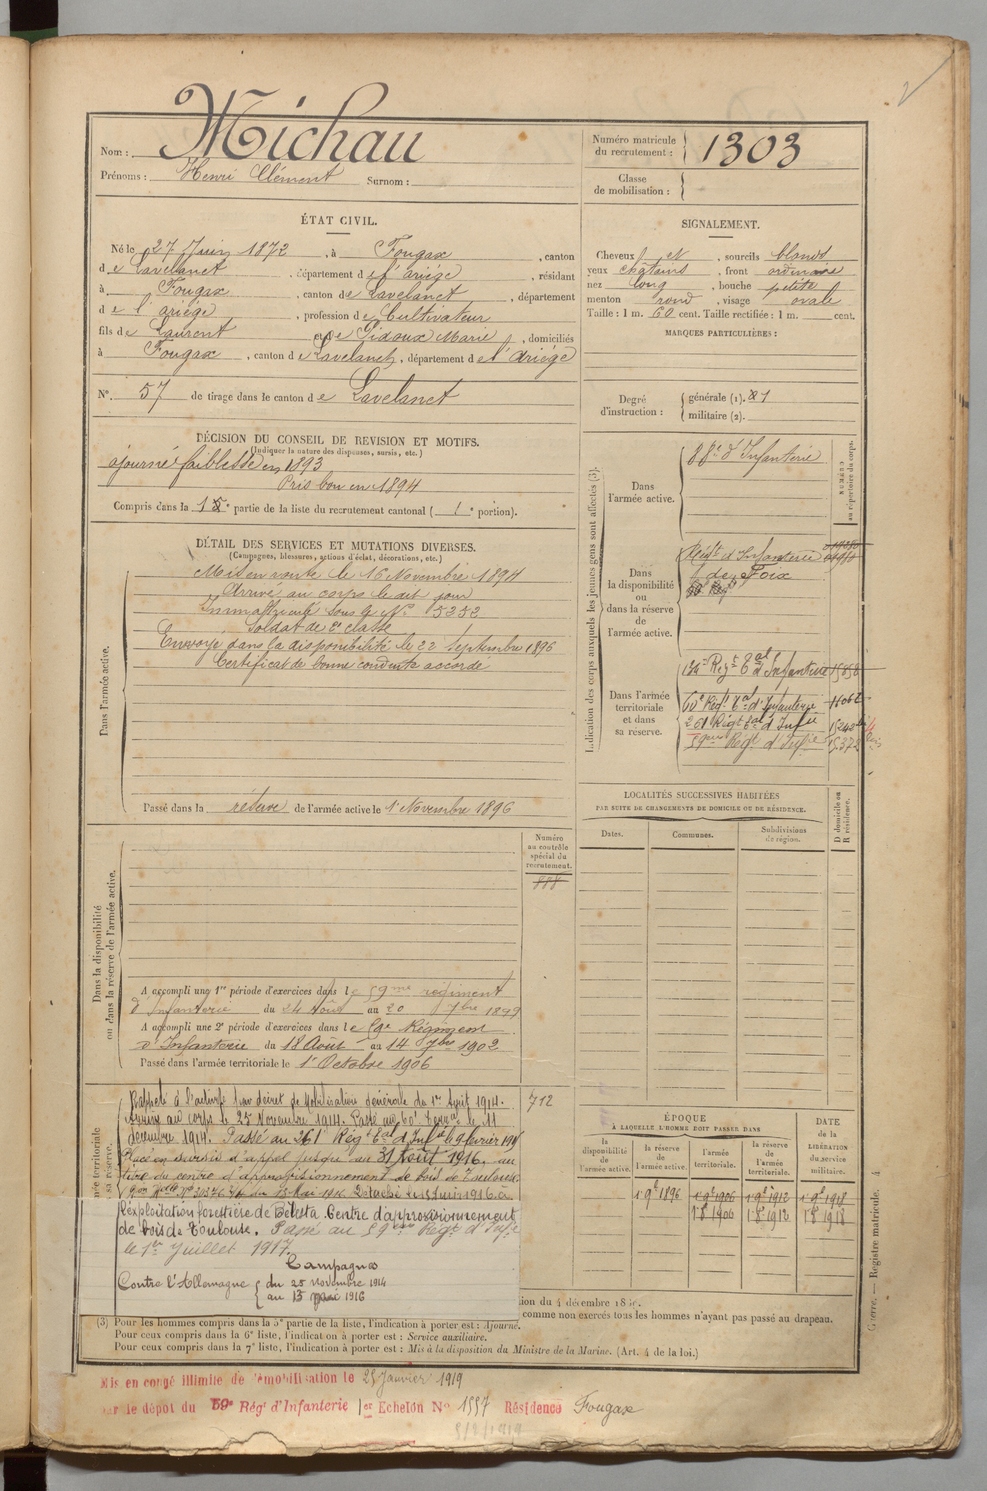 Michau
Nom :
Prénoms : Henri Clément Surnom :
Numéro matricule
du recrutement : 1303
Classe
de mobilisation :
ÉTAT CIVIL.
Né le 27 Juin 1872, à Fougax, canton
de Lavelanet, département de l'ariège, résidant
à Fougax, canton de Lavelanet, département
de l'ariège, profession de Cultivateur
fils de Laurent et de Sidoux Marie, domiciliés
à Fougax, canton de Lavelanet, département de l'ariège
N° 57 de tirage dans le canton de Lavelanet
SIGNALEMENT.
Cheveux et, sourcils blonds
yeux chatains, front ordinaire
nez long, bouche petite
menton rond, visage ovale
Taille : 1 m. 60 cent. Taille rectifiée : 1 m. cent.
MARQUES PARTICULIÈRES :
Degré
d'instruction :
générale (1).
militaire (2).
DÉCISION DU CONSEIL DE REVISION ET MOTIFS.
(Indiquer la nature des dispenses, sursis, etc.)
ajourné faiblesse en 1893
Pris bon en 1894
Compris dans la 1e partie de la liste du recrutement cantonal ( 1e portion).
DÉTAIL DES SERVICES ET MUTATIONS DIVERSES.
(Campagnes, blessures, actions d'éclat, décorations, etc.)
Dans l'armée active.
Mis en route le 16 Novembre 1894
Arrivé au corps le dit jour
Immatriculé sous le N° 5252
Soldat de 2e classe
Envoyé dans la disponibilité le 22 Septembre 1896
Certificat de bonne conduite accordé
Passé dans la réserve de l'armée active le 1 Novembre 1896
Indication des corps auxquels les jeunes gens sont affectés (3).
NUMÉRO
au répertoire du corps.
Dans
l'armée active.
d'Infanterie
Dans
la disponibilité
ou
dans la réserve
de
l'armée active.
Régt d'Infanterie
de Foix
Dans l'armée
territoriale
et dans
sa réserve.
134e Regt Eal d'Infanterie 15858
60e Régt Eal d'Infanterie 16062
261 Régt Eal d'Infie
59eme Régt d'Infie
LOCALITÉS SUCCESSIVES HABITÉES
PAR SUITE DE CHANGEMENTS DE DOMICILE OU DE RÉSIDENCE.
Dates.
Communes.
Subdivisions
de région.
D domicile ou
R résidence.
Dans la disponibilité
ou dans la réserve de l'armée active.
Numéro
au contrôle
spécial du
recrutement.
A accompli une 1re période d'exercices dans le 59me régiment
d'Infanterie du 24 Août au 20 7bre 1899
A accompli une 2e période d'exercices dans le 59e Régiment
d'Infanterie du 18 Août au 14 7bre 1902
Passé dans l'armée territoriale le 1er Octobre 1906
712
Rappelé à l'activité par décret de Mobilisation Générale du 1er Août 1914.
Arrivé au corps le 25 Novembre 1914. Passé au 60e Terral le 11
décembre 1914. Passé au 261e Régt Eal d'Infie le 9 février 191
Placé en sursis d'appel jusqu'au 31 Août 1916. au
titre du centre d'approvisionnement de bois de Toulouse
du 13 Mai 1916. Détaché le 15 Juin 1916 à
l'exploitation forestière de Bélesta. Centre d'approvisionnement
de bois de Toulouse. Passé au 59eme Régt d'Infie
le 1er Juillet 1917.
Campagnes
Contre l'Allemagne { du 25 novembre 1914
au 13 mai 1916
ÉPOQUE
À LAQUELLE L'HOMME DOIT PASSER DANS
la
disponibilité
de
l'armée active.
la
réserve
de
l'armée active.
l'armée
territoriale.
la réserve
de
l'armée
territoriale.
DATE
de la
LIBÉRATION
du service
militaire.
1 9e 1896 1 9e 1906 1 9e 1912 1 9e 1918
1 8 1906 1 8e 1912 1 8 1918
Guerre. — Registre matricule. 4
comme non exercés tous les hommes n'ayant pas passé au drapeau.
(3) Pour les hommes compris dans la 5e partie de la liste, l'indication à porter est : Ajourné.
Pour ceux compris dans la 6e liste, l'indication à porter est : Service auxiliaire.
Pour ceux compris dans la 7e liste, l'indication à porter est : Mis à la disposition du Ministre de la Marine. (Art. 4 de la loi.)
Mis en congé illimité de démobilisation le 25 Janvier 1919
par le dépôt du 59e Régt d'Infanterie 1er Echelon N° 1557 Résidence Fougax